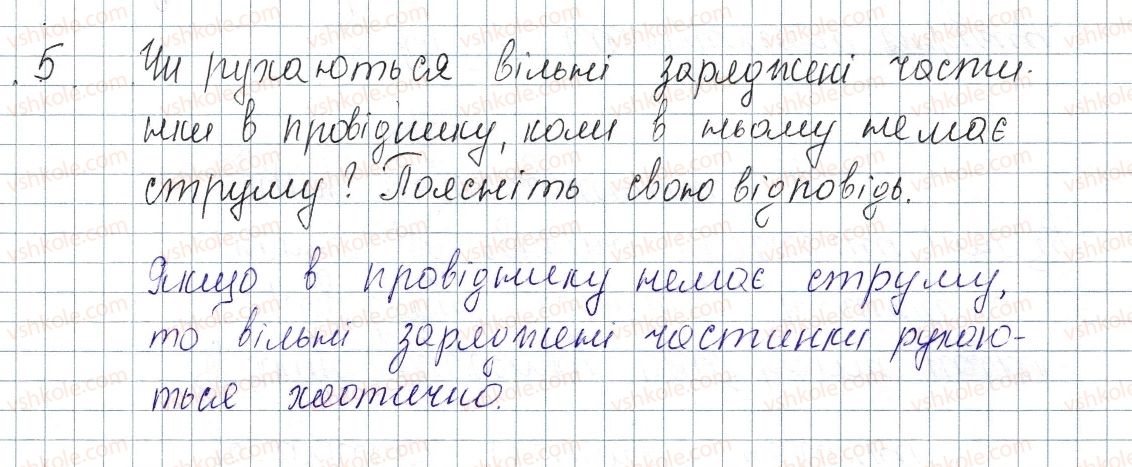 5 Чи рухаються вільні заряджені части-
нки в провіднику, коли в ньому немає
струму? Поясніть свою відповідь.
Якщо в провіднику немає струму,
то вільні заряджені частинки рухаю-
ться хаотично.